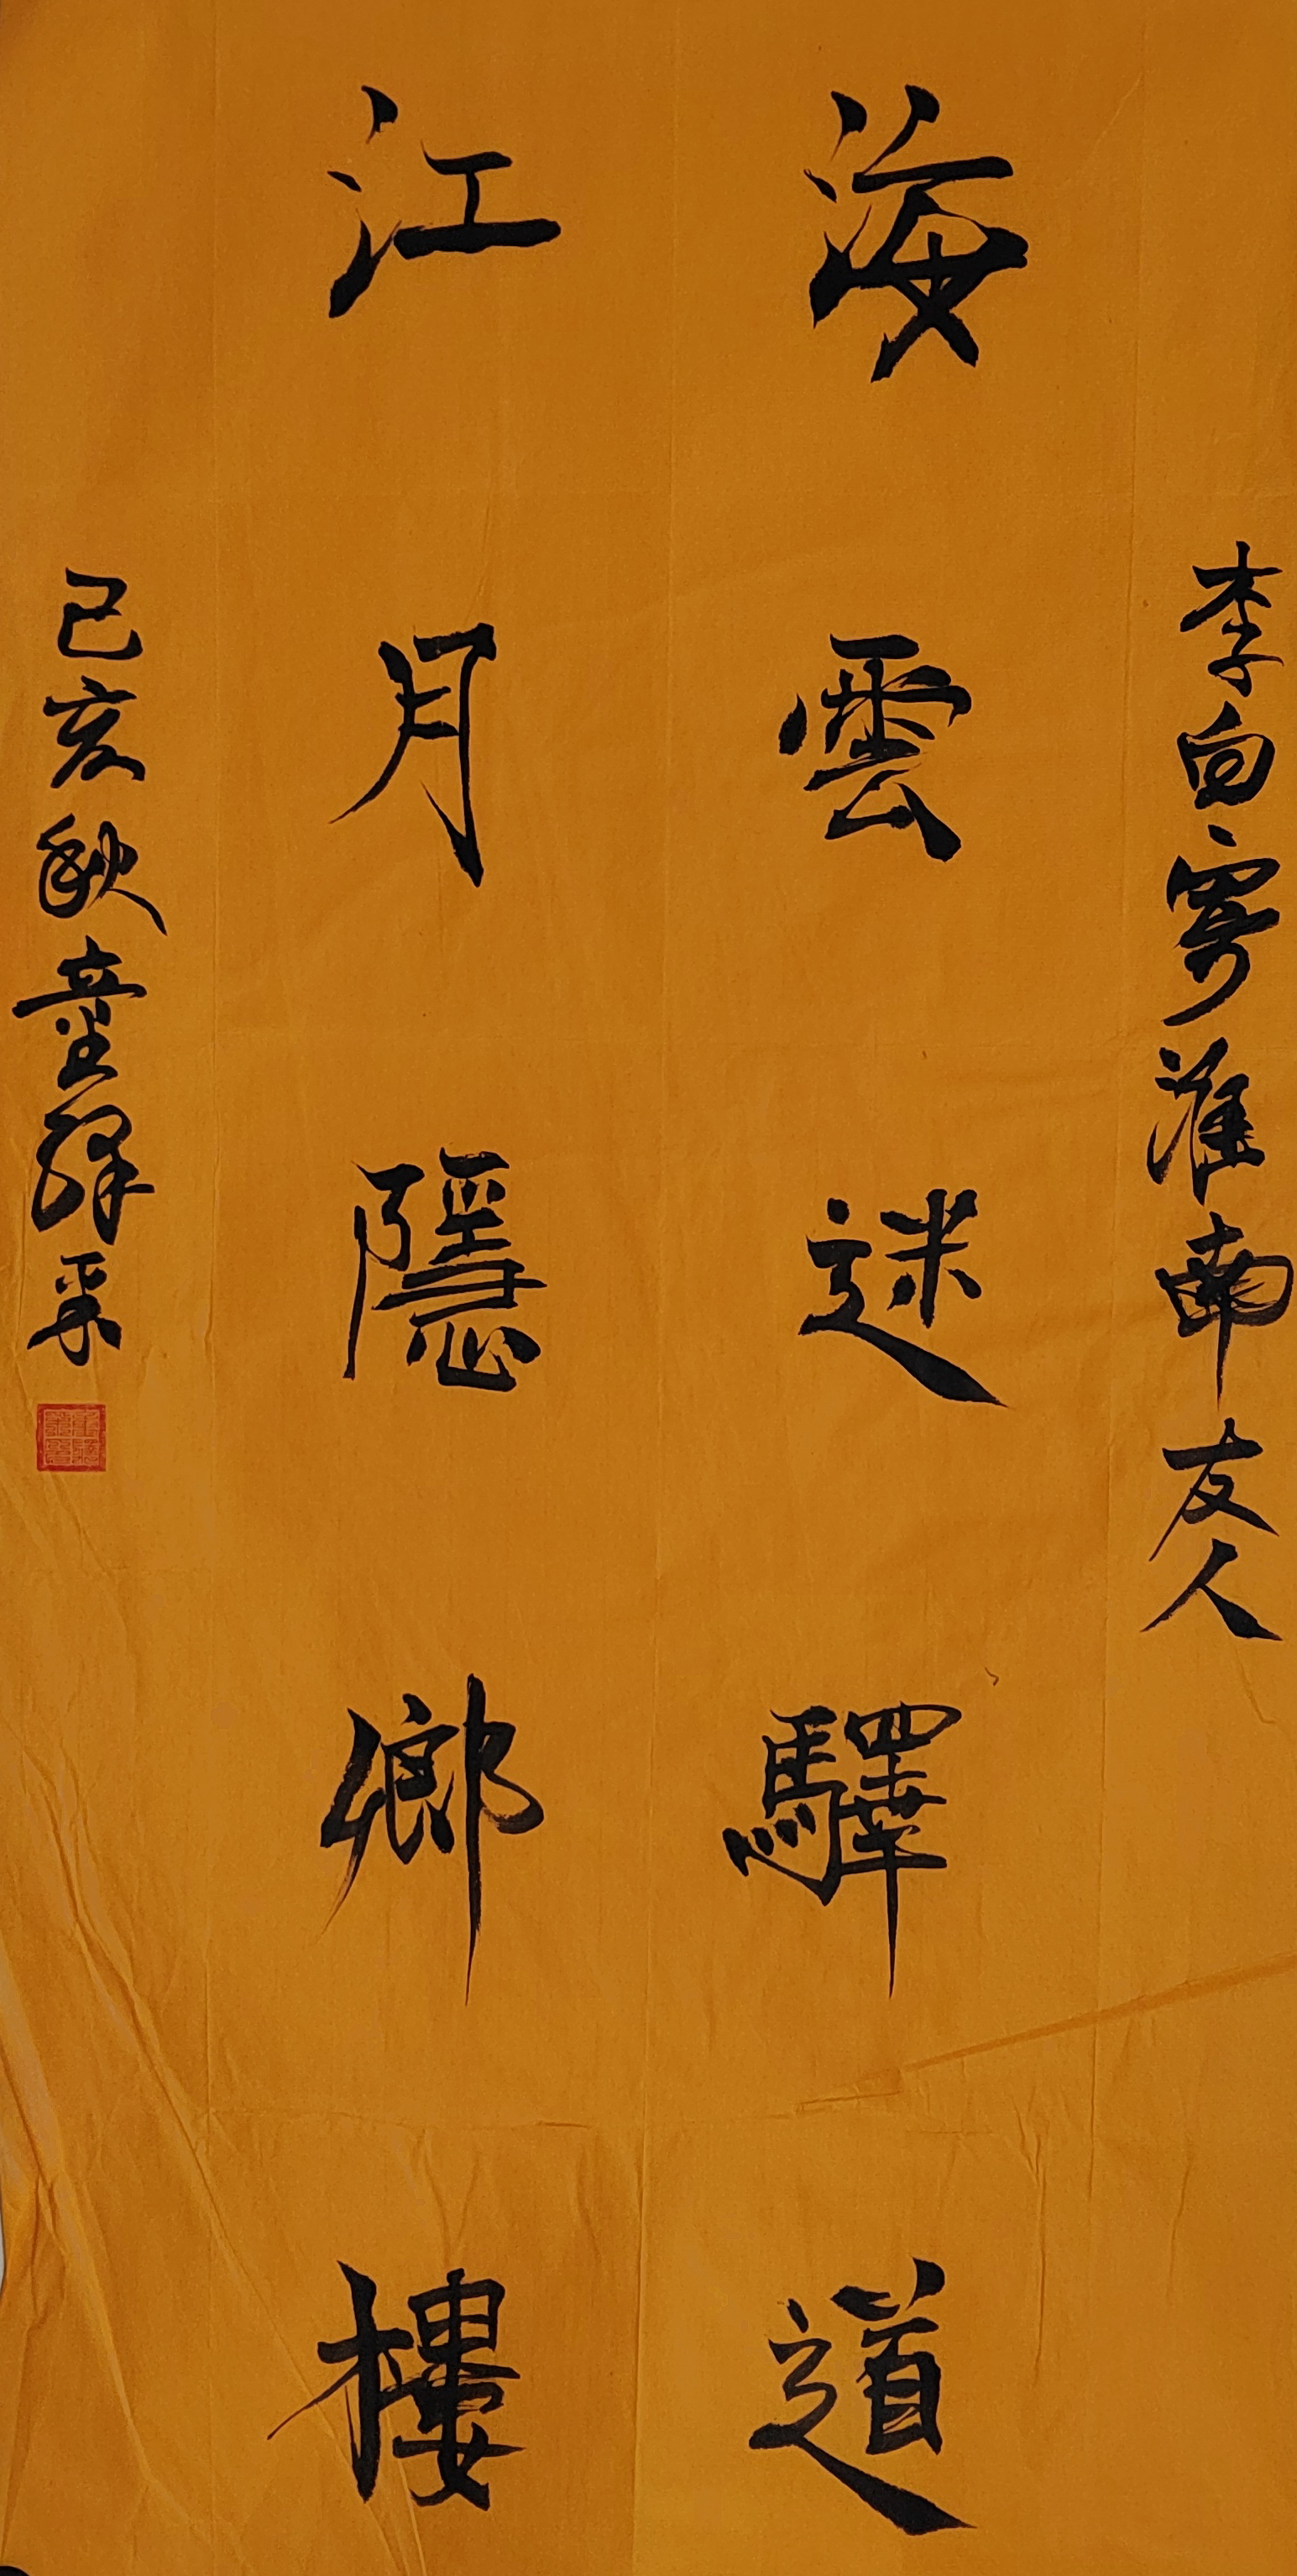 李白寄淮南友人
海雲迷驛道
江月隱鄉樓
己亥秋童